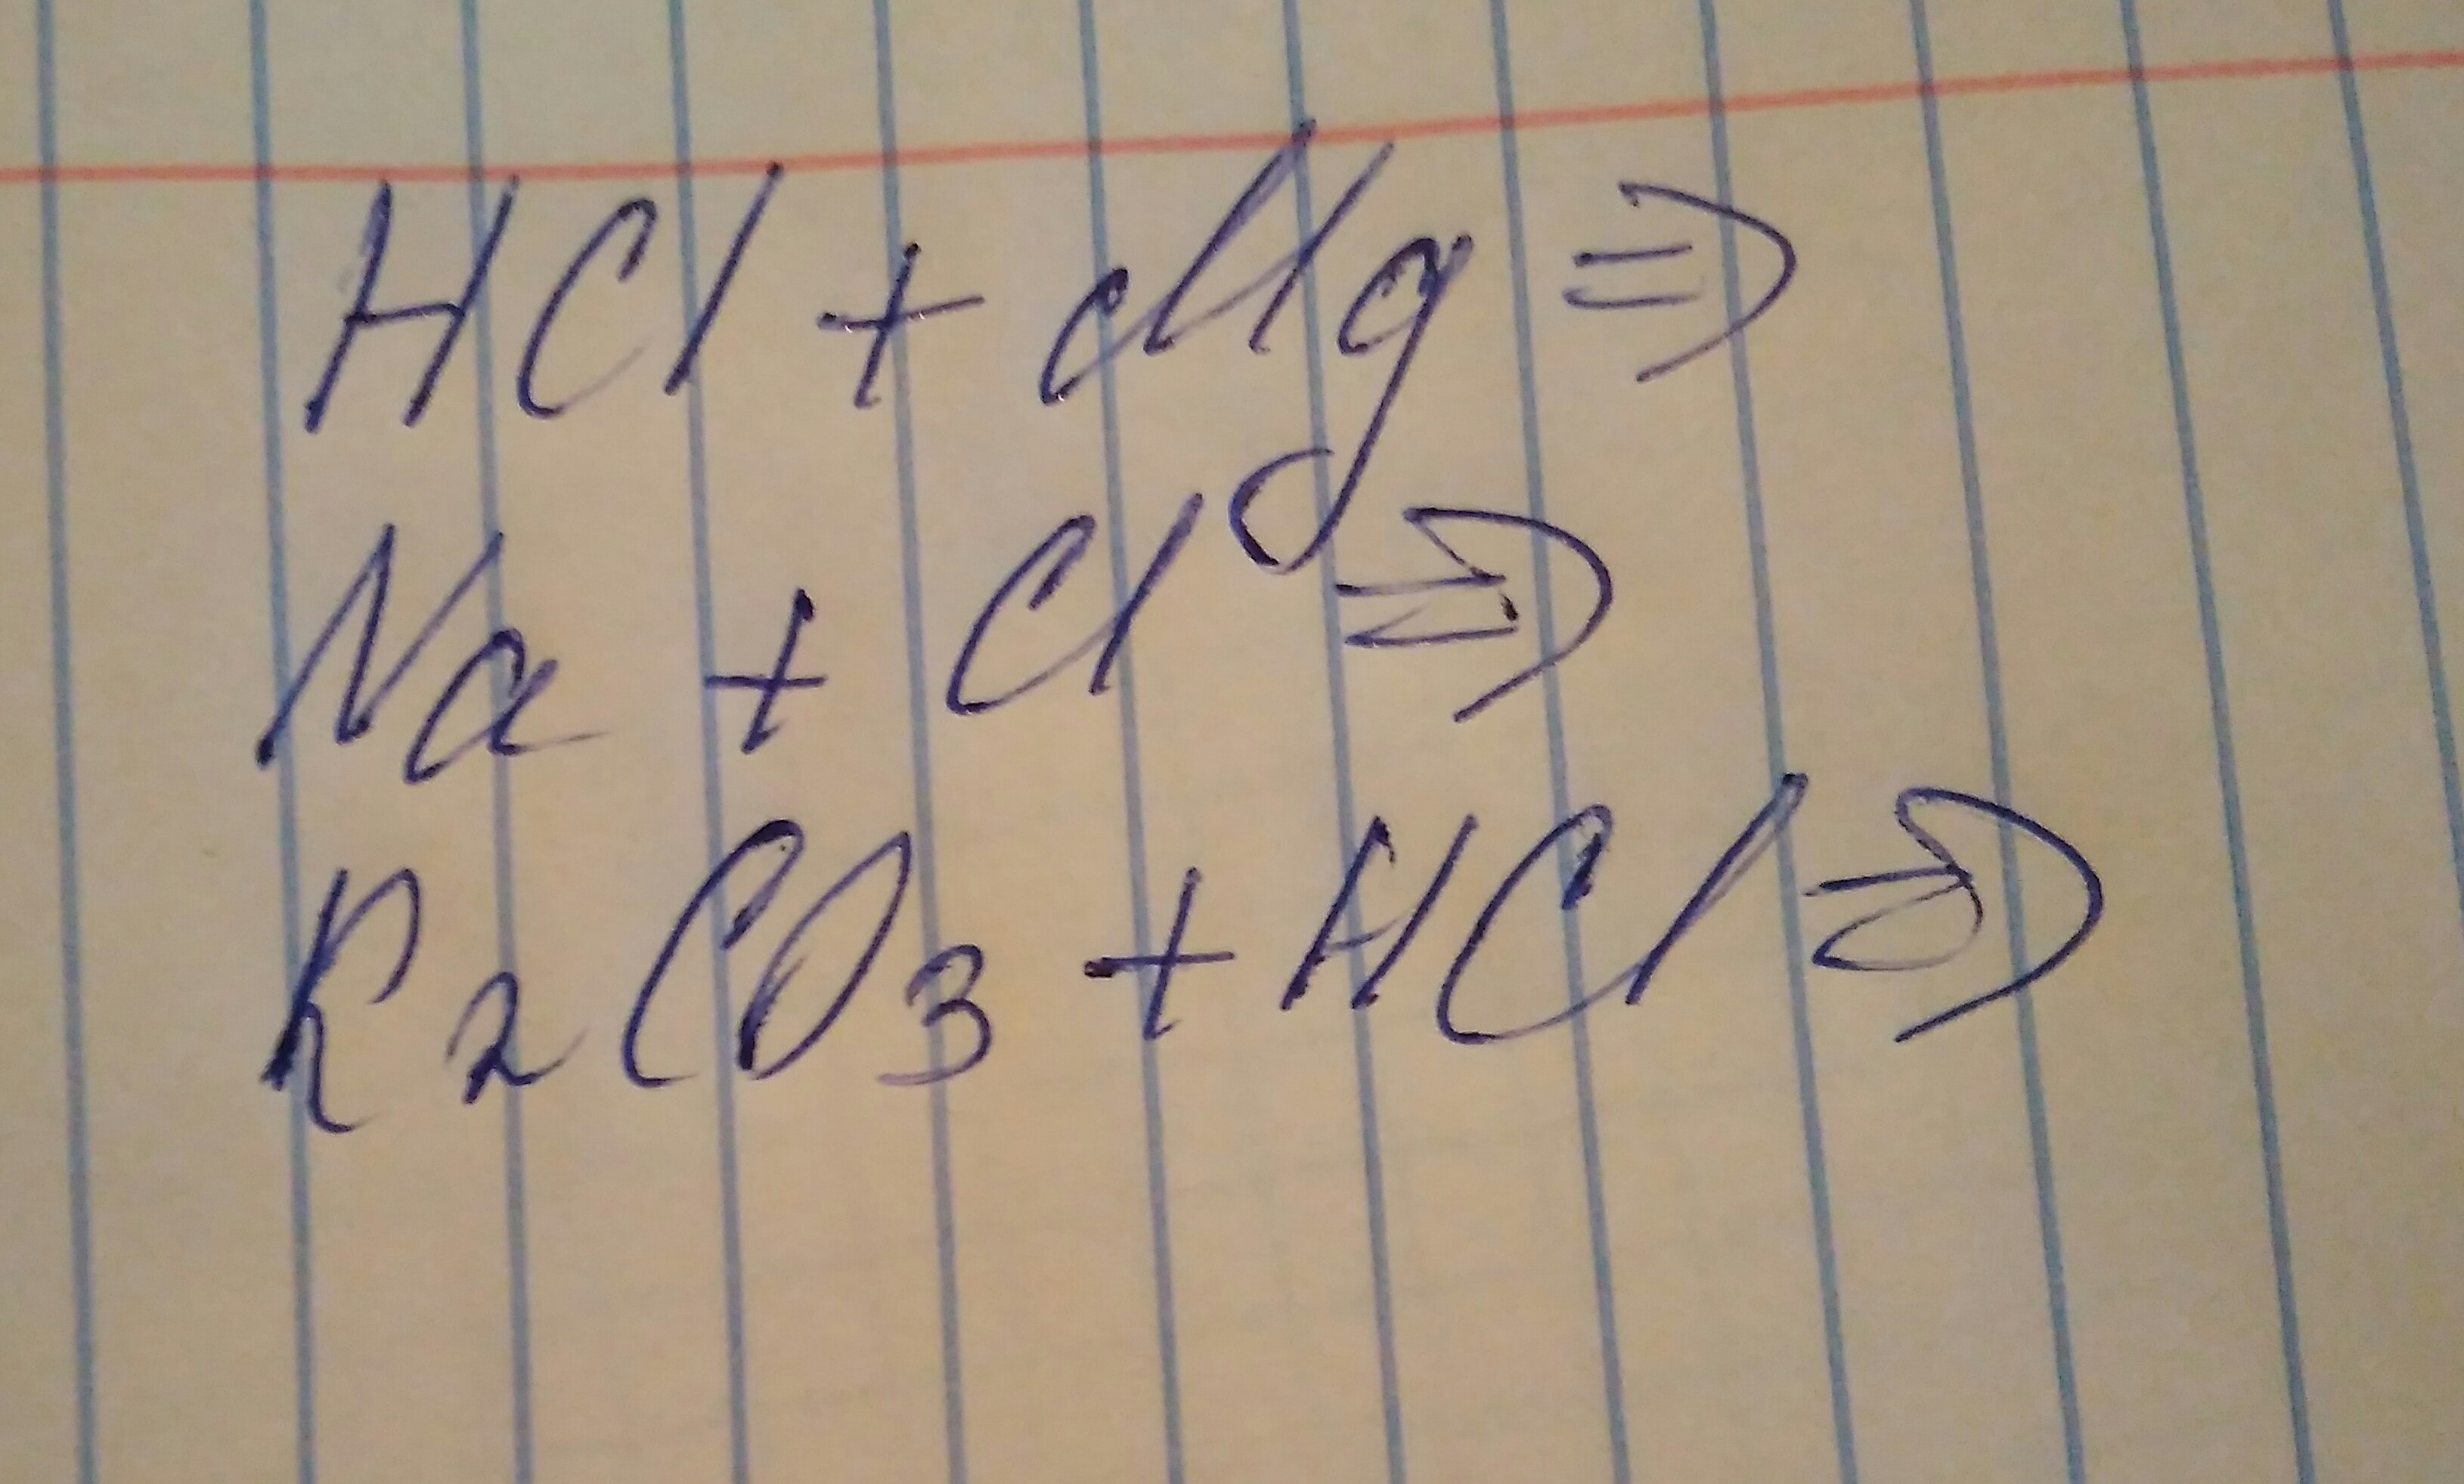 HCl + Mg ⇒
Na + Cl ⇒
K₂CO₃ + HCl ⇒